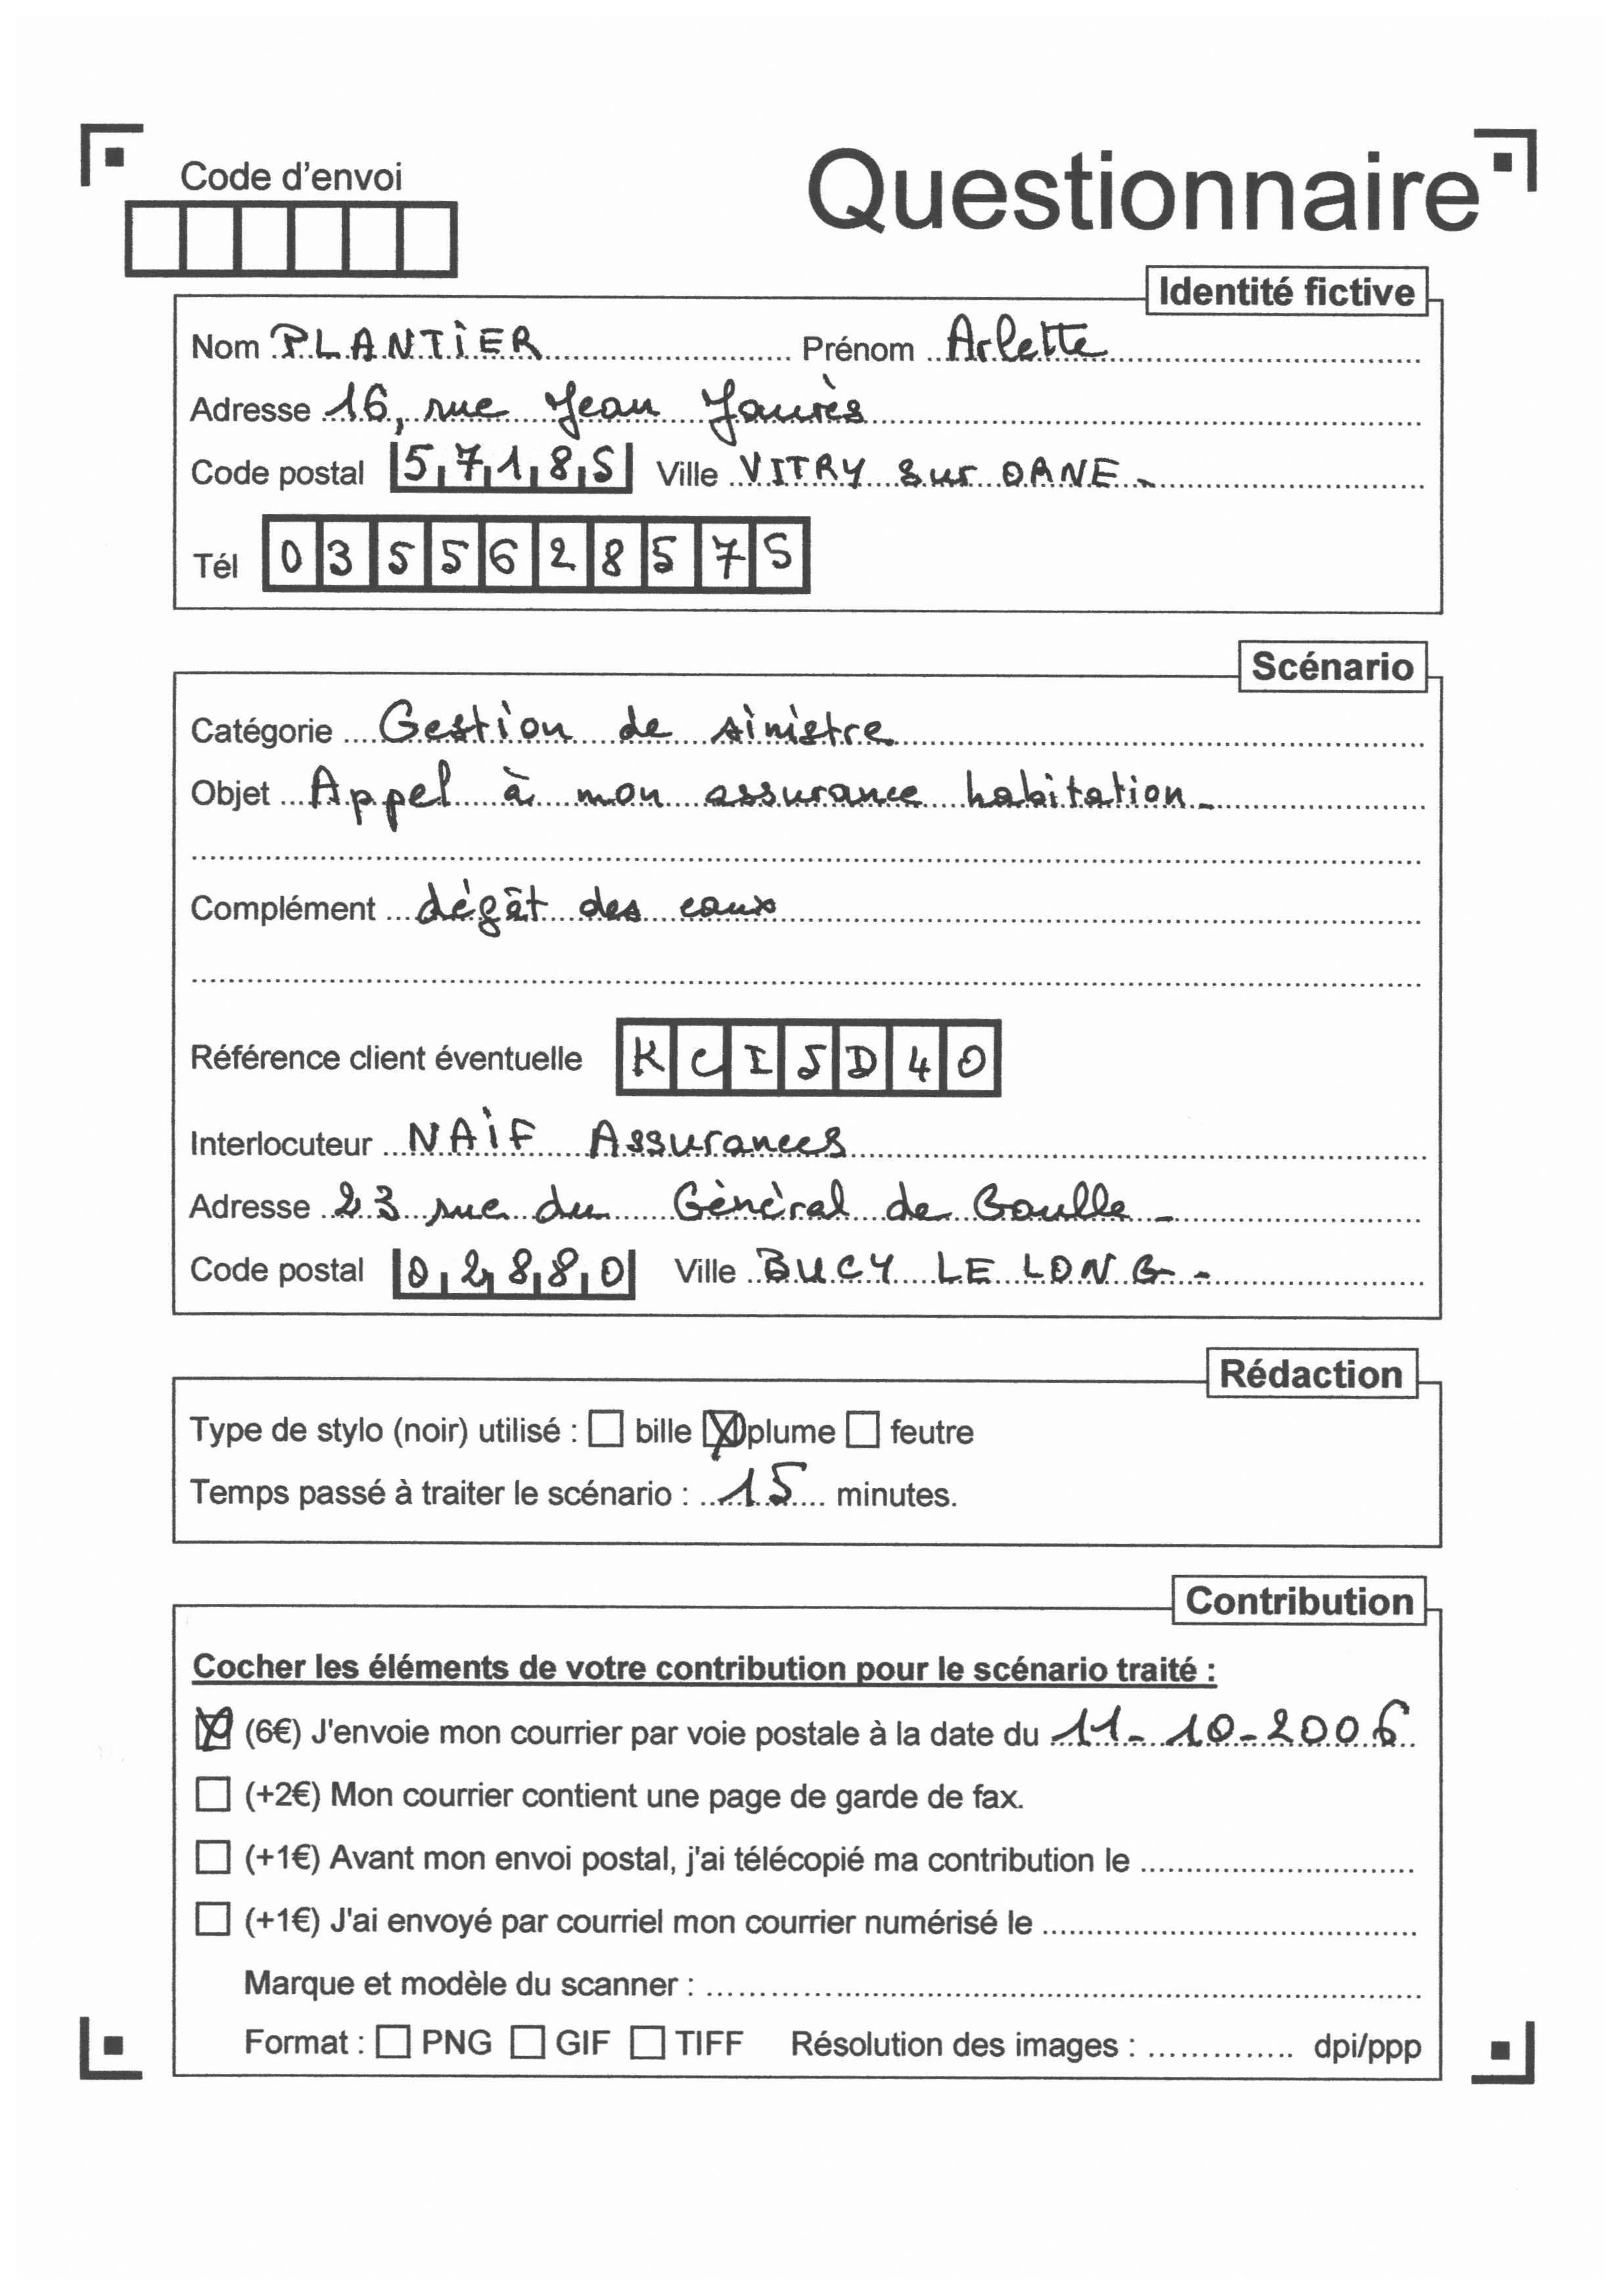 Code d'envoi
Questionnaire
Identité fictive
Nom PLANTIER Prénom Arlette
Adresse 16, rue Jean Jaurès
Code postal 57185 Ville VITRY sur ORNE
Tél 0355628575
Scénario
Catégorie Gestion de sinistre
Objet Appel à mon assurance habitation
Complément dégât des eaux
Référence client éventuelle KCISD40
Interlocuteur NAIF Assurances
Adresse 23 rue du Général de Gaulle
Code postal 02880 Ville BUCY LE LONG
Rédaction
Type de stylo (noir) utilisé : bille plume feutre
Temps passé à traiter le scénario : 15 minutes.
Contribution
Cocher les éléments de votre contribution pour le scénario traité :
(6€) J'envoie mon courrier par voie postale à la date du 11-10-2006
(+2€) Mon courrier contient une page de garde de fax.
(+1€) Avant mon envoi postal, j'ai télécopié ma contribution le
(+1€) J'ai envoyé par courriel mon courrier numérisé le
Marque et modèle du scanner :
Format : PNG GIF TIFF Résolution des images : dpi/ppp